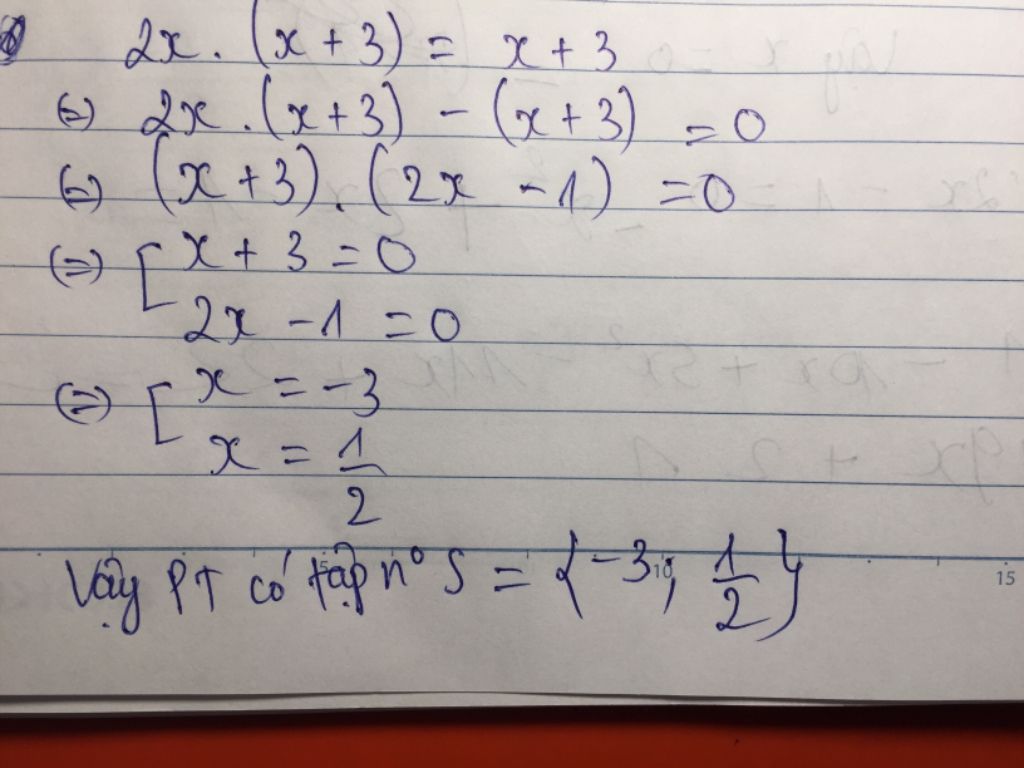 2x . (x + 3) = x + 3
(=) 2x . (x + 3) - (x + 3) = 0
(=) (x + 3) . (2x - 1) = 0
(=) [ x + 3 = 0
2x - 1 = 0
(=) [ x = -3
x = 1/2
Vậy PT có tập n° S = {-3; 1/2}
10
15